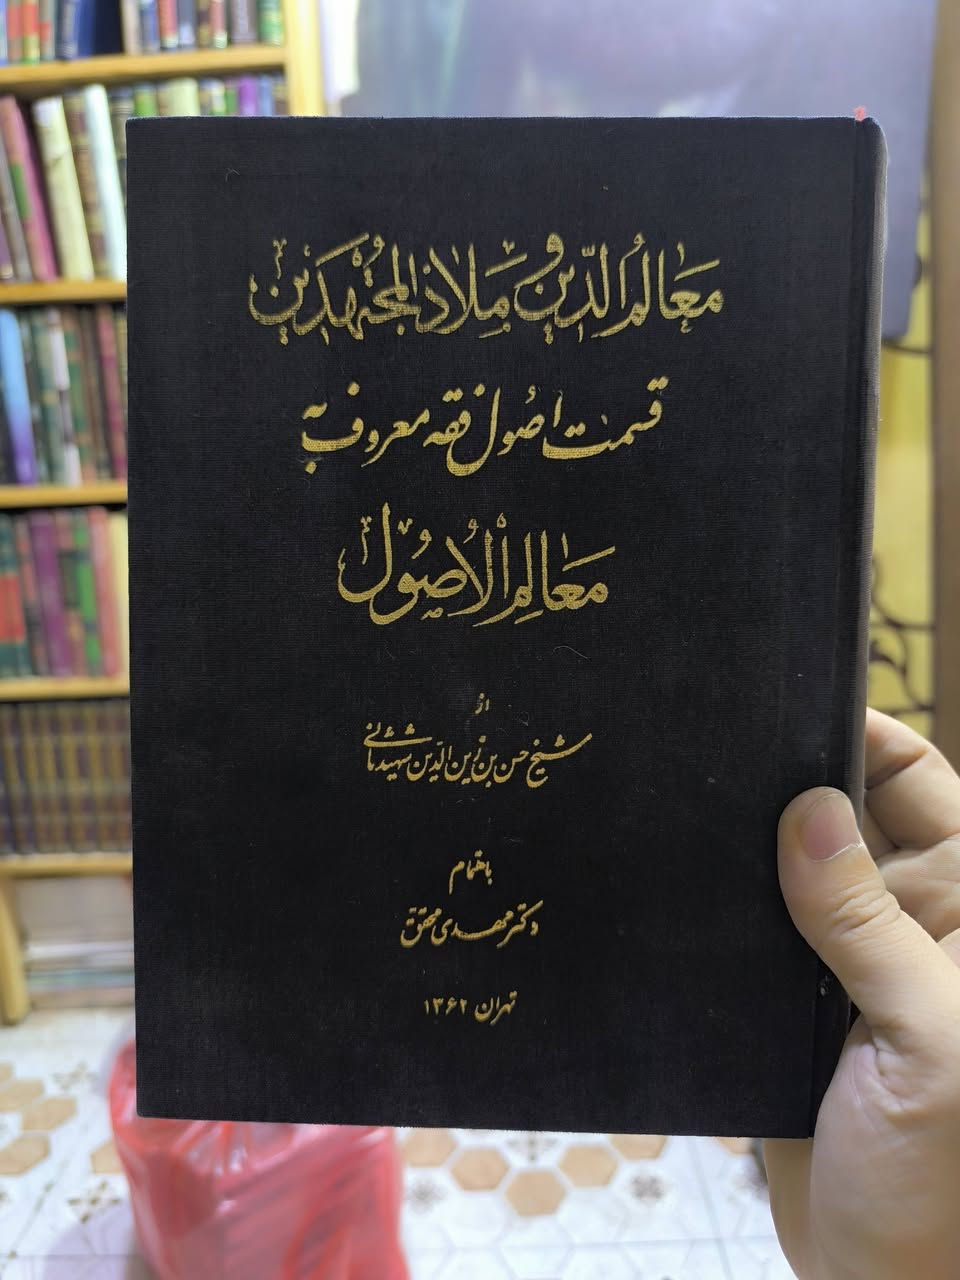 معالم الدّين و ملاذ المجتهدين
قسمت اصول فقه معروف به
معالم الاصول
از
شيخ حسن بن زين الدّين شهيد ثانى
باهتمام
دكتر مهدى محقق
تهران ۱۳۶۲